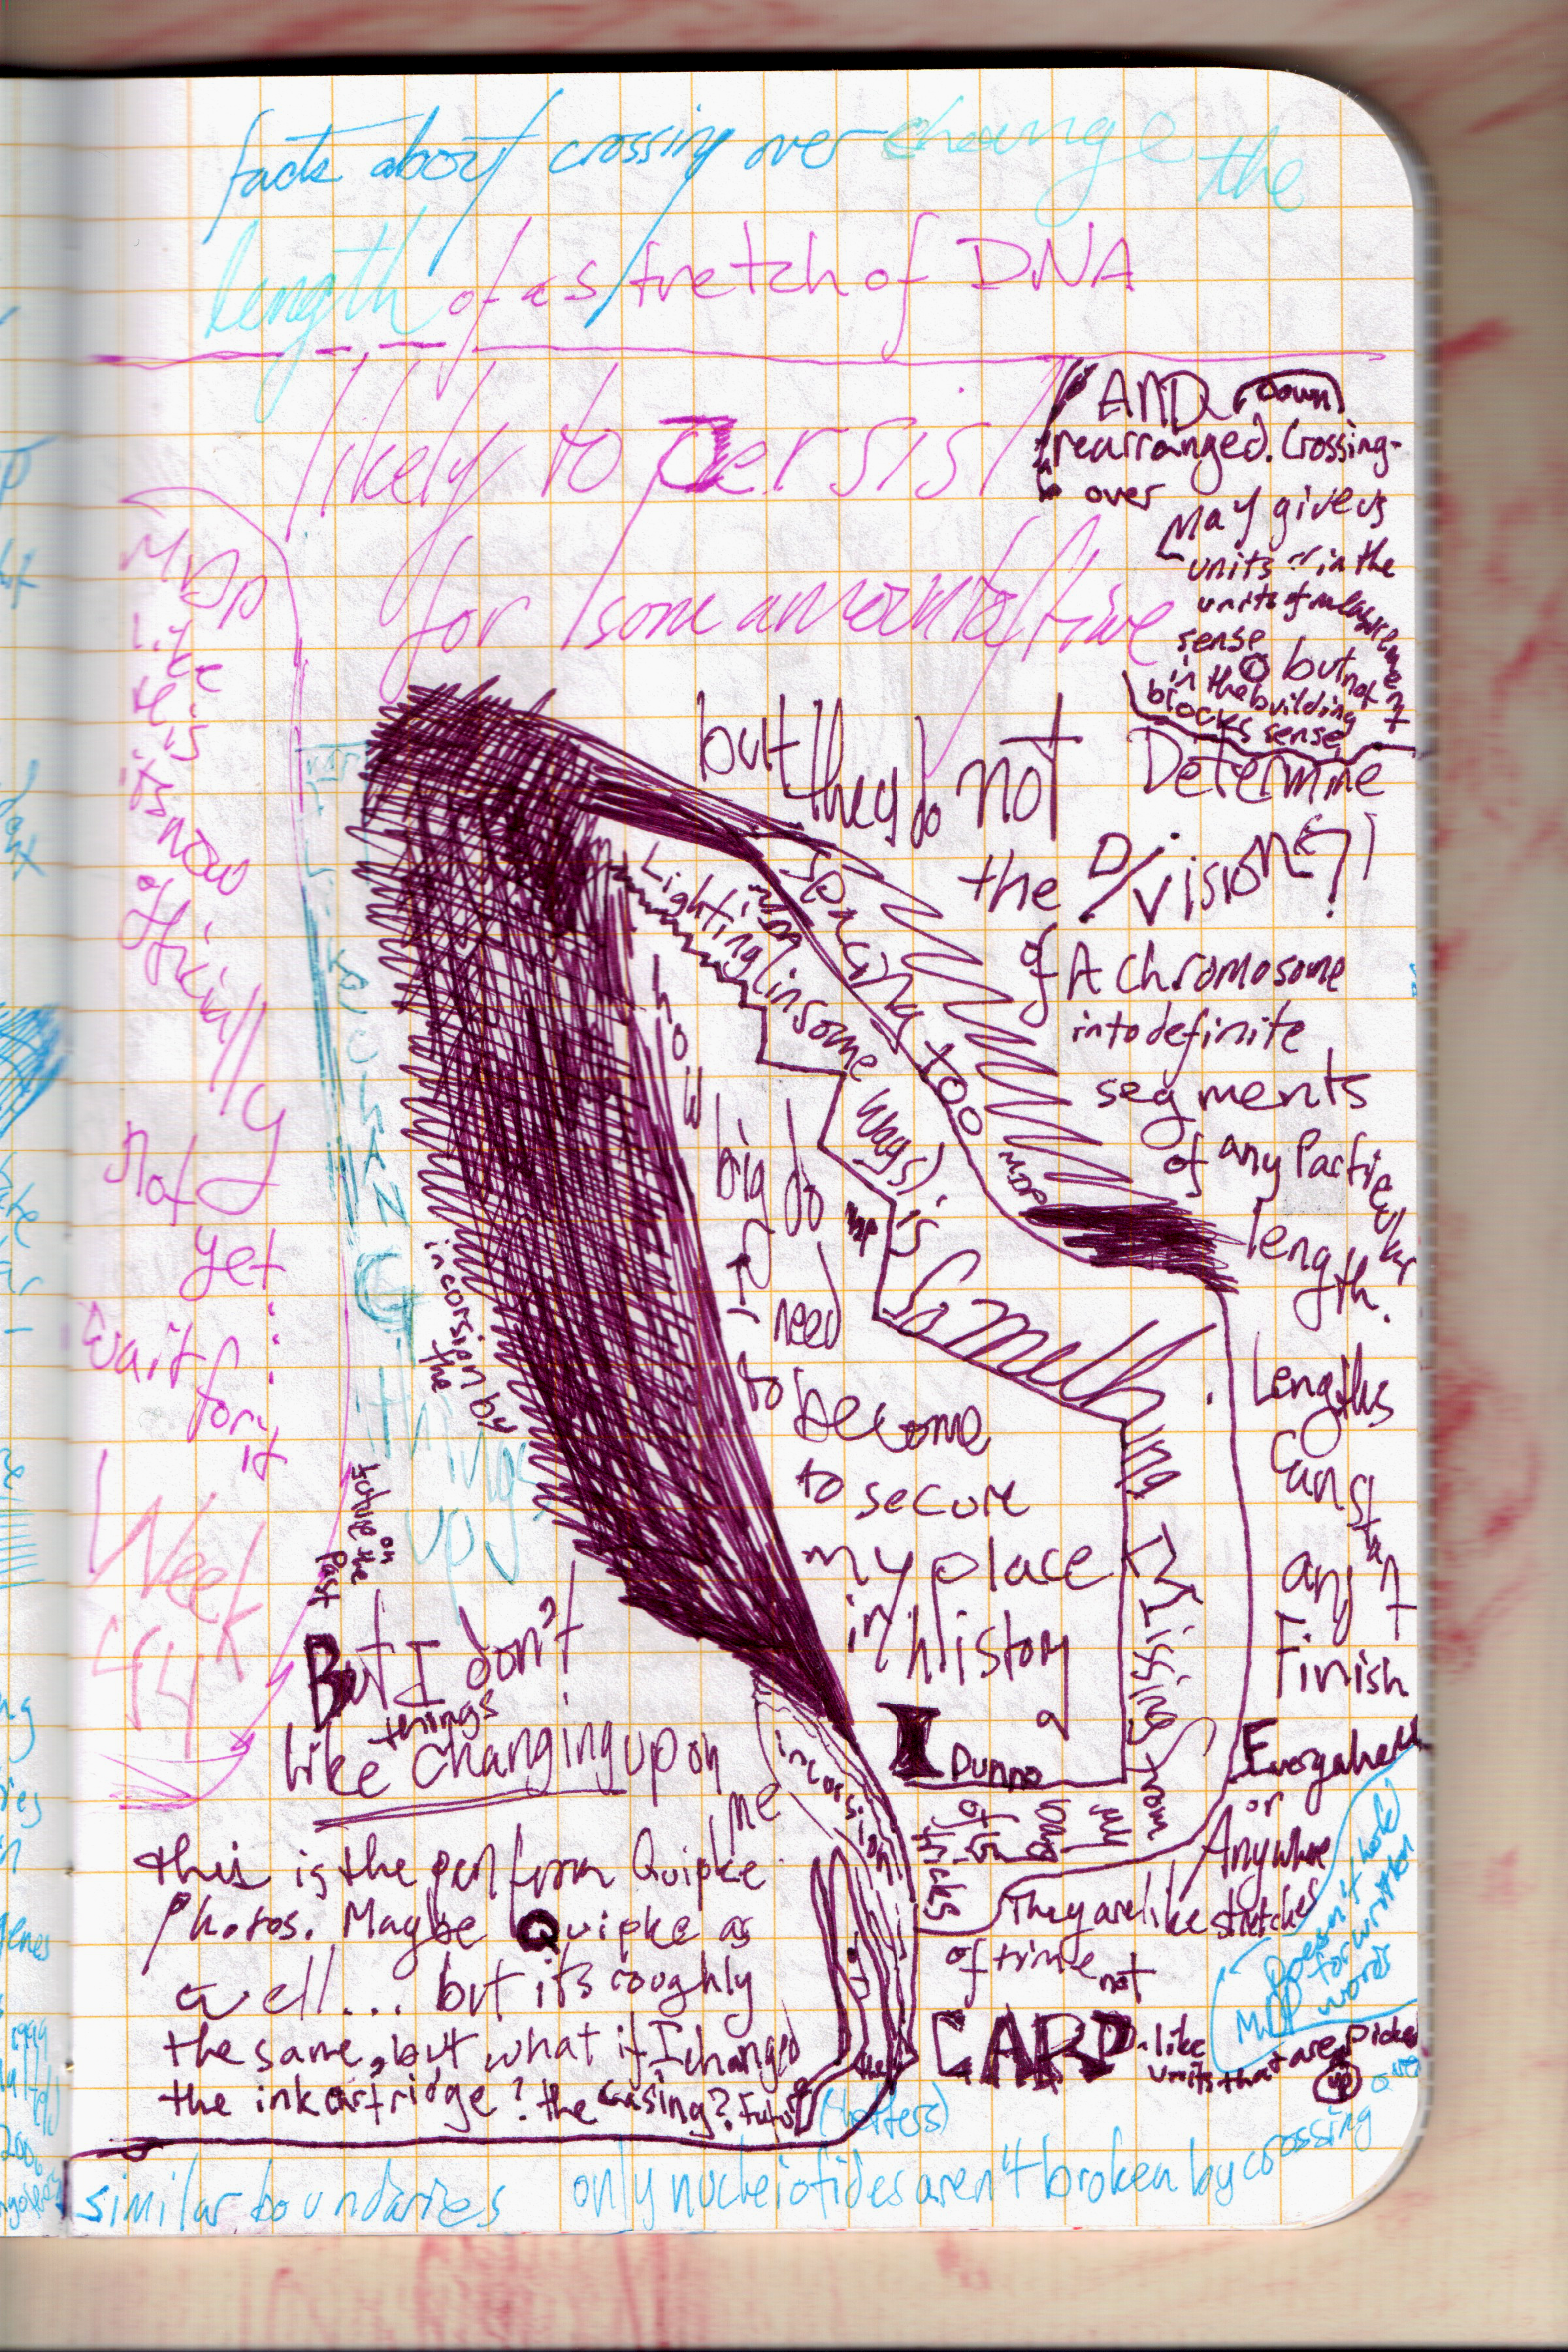 facts about crossing over change the
length of a stretch of DNA
likely to persist
for some amount of time
AND Down
rearranged. Crossing-
over
May give us
units in the
units of measurement
sense but not
in the building
blocks sense
but they do not Determine
the Division?!
of A chromosome
into definite
segments
of any Particular
length.
Lengths
Can start
and
Finish
Everywhere
or
Anywhere
They are like stretches
of time not
CARD-like
units that are picked
up
MDD
like
this
it's now
officially
not
yet
wait for
it
Week
44
KeeP
CHANGing
things
up
incorsion by
the
future on
the
Past
Lighting (in some ways) is
Something Missing from
my
of
tricks
Spacing too
MDD
how
big do
I need
to become
to secure
my place
in history
I Dunno
But I don't
like things changing up on
me
incorsion
the
this is the pen from Quipke
Photos. Maybe Quipke as
well... but its roughly
the same, but what if I changed
the ink cartridge? the casing?
Doesn't hold
for written
words
MDD
(letters)
similar boundaries only nucleiotides aren't broken by crossing
over